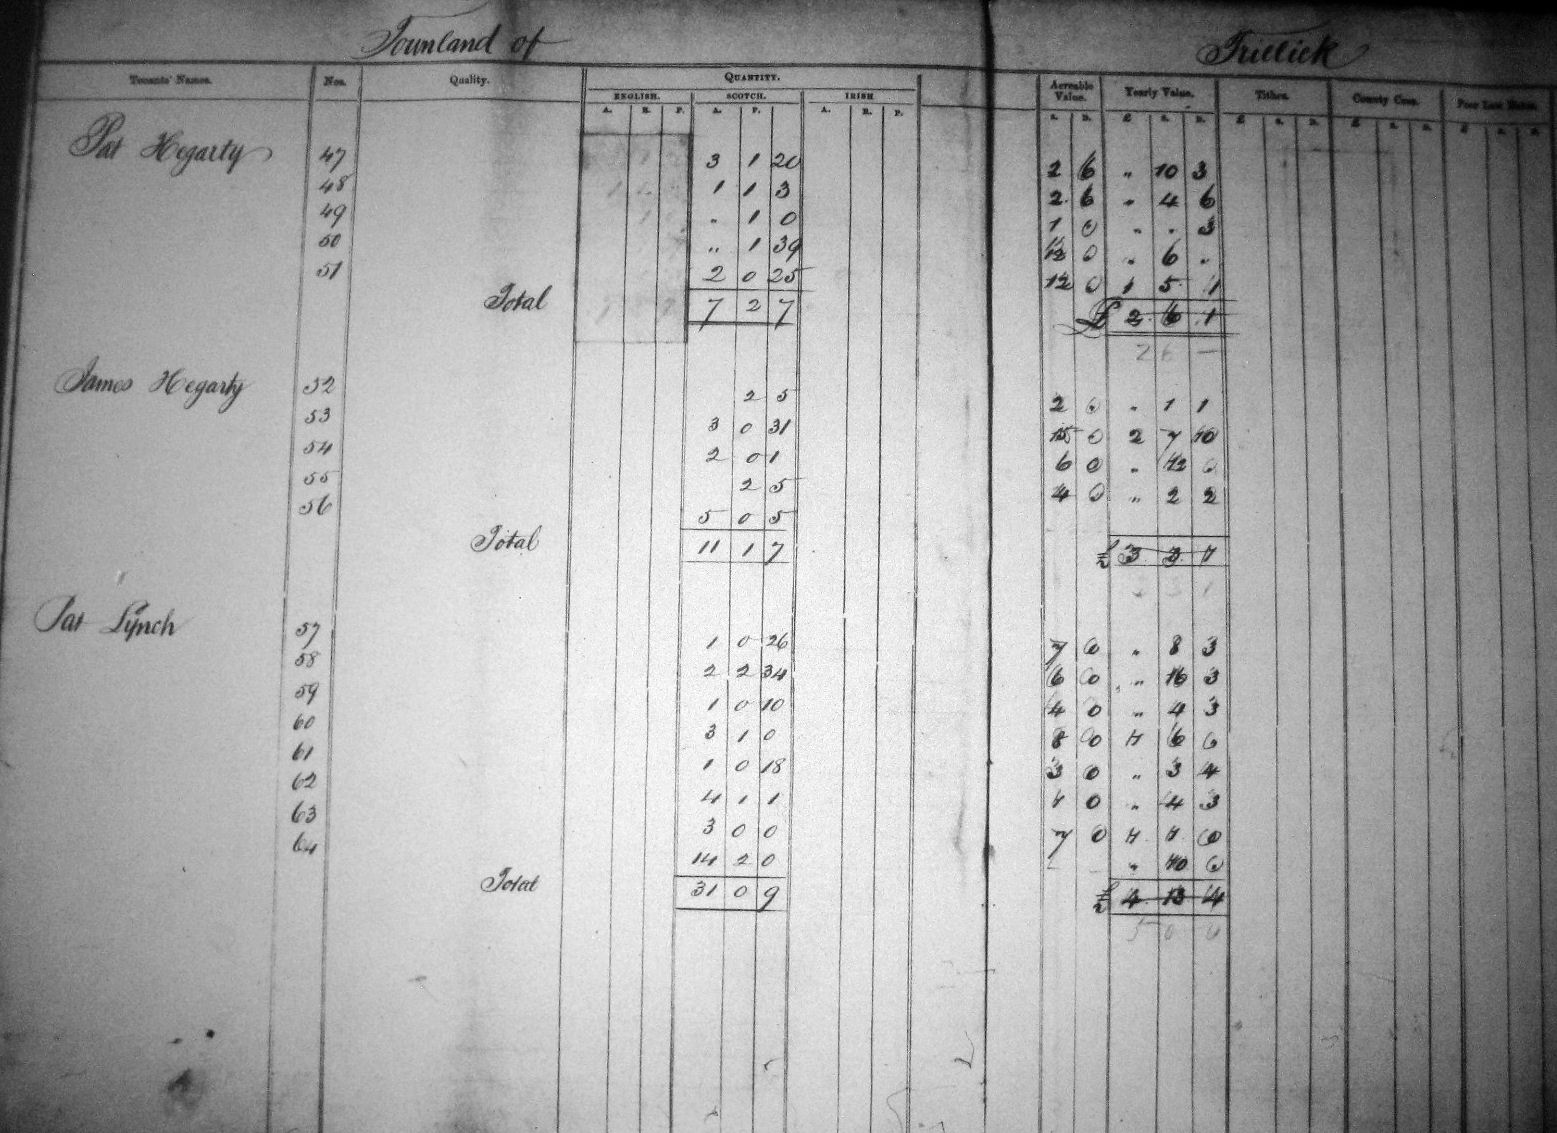 Townland of Trillick
Tenants' Names. Nos. Quality. QUANTITY. Acreable Value. Yearly Value. Tithes. County Cess. Poor Law Rates.
ENGLISH. SCOTCH. IRISH
A. R. P. A. P. A. R. P. s. D. £ s. D. £ s. D. £ s. D. £ s. D.
Pat Hegarty 47 3 1 20 2 6 " 10 3
48 1 1 3 2 6 " 4 6
49 " 1 0 1 0 " " 3
50 " 1 39 12 0 " 6 "
51 2 0 25 12 0 1 5 1
Total 7 2 7 £ 2 6 1
2 6 —
James Hegarty 52 2 5 2 0 " 1 1
53 3 0 31 15 0 2 7 10
54 2 0 1 6 0 " 12 0
55 2 5 4 0 " 2 2
56 5 0 5
Total 11 1 7 £ 3 3 1
Pat Lynch 57 1 0 26 7 0 " 8 3
58 2 2 34 6 0 " 16 3
59 1 0 10 4 0 " 4 3
60 3 1 0 8 0 1 6 0
61 1 0 18 3 0 " 3 4
62 4 1 1 1 0 " 4 3
63 3 0 0 7 0 1 1 0
64 14 2 0 " 10 0
Total 31 0 9 £ 4 13 4